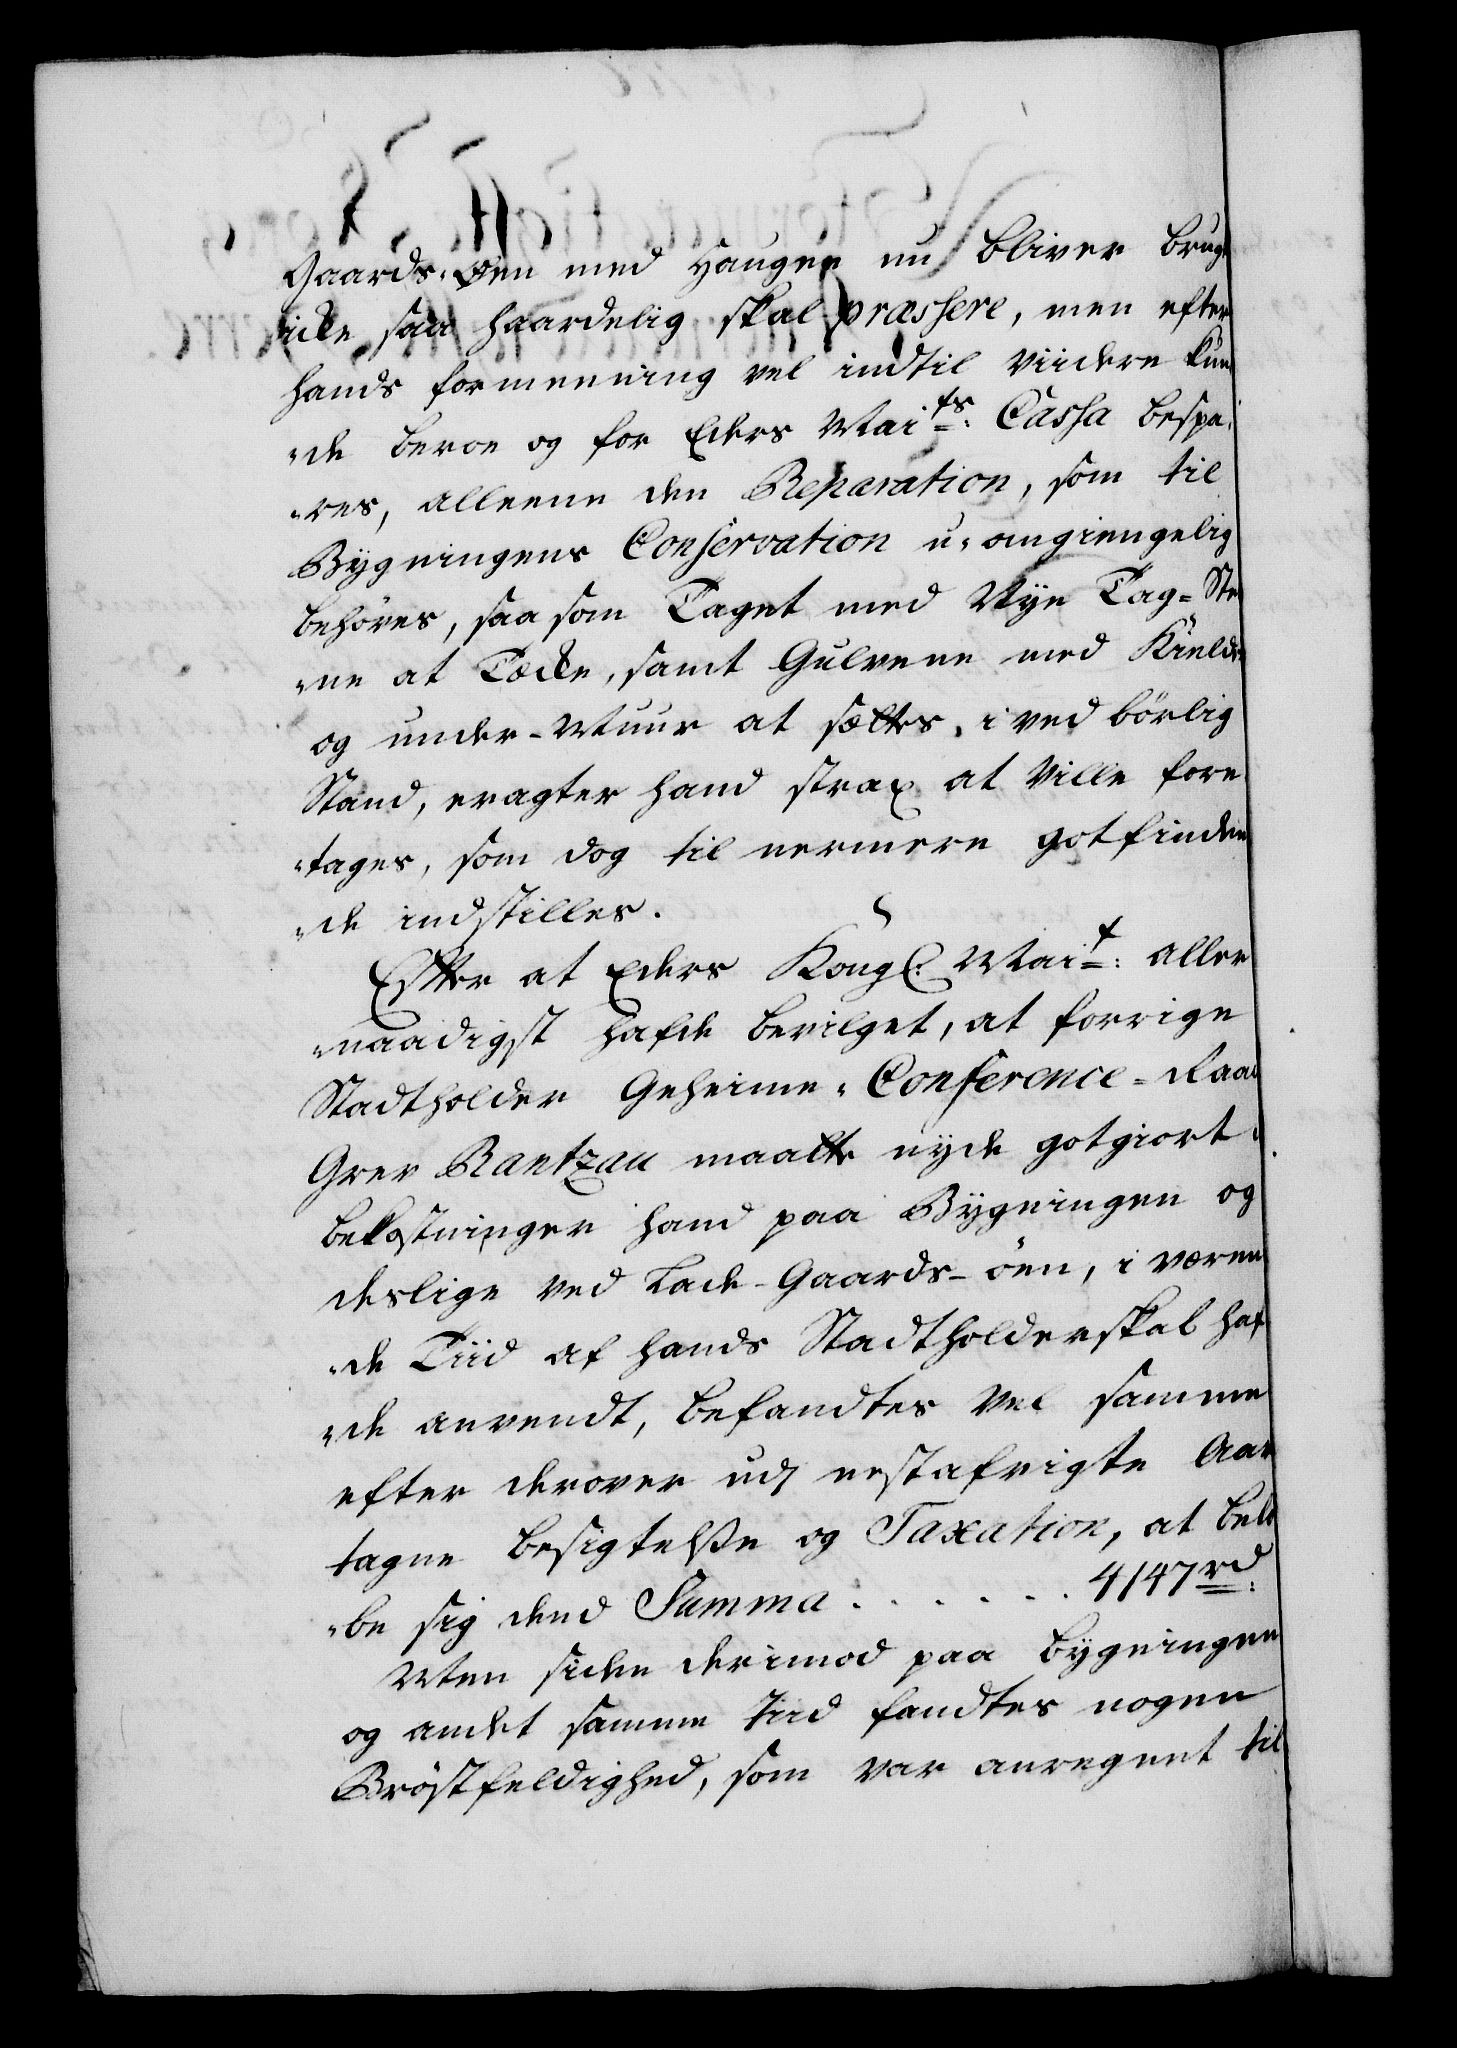 Gaards-Øen med Haugen nu bliver brug
icke saa haardelig skal præssere, men efter
hands formeening vel indtil viidere kun
-de beroe og for Eders Maits: Cassa bespa-
-res, alleene den Reparation, som til
Bygningens Conservation u-omgiengelig
behöves, saa som Taget med Nye Tag-Ste
-ne at Tække, samt Gulvene med Kielder
og under-Muur at sættes, i ved börlig
Stand, eragter hand strax at ville fore
-tages, som dog til nermere gotfinden
-de indstilles.
Efter at Eders Kongl: Mait: aller
-naadigst hafde bevilget, at forrige
Stadtholder Geheime-Conference-Raad
Grev Rantzau maatte nyde gotgiort
bekostninger hand paa Bygningen og
deslige ved Lade-Gaards-öen, i væren
-de Tiid af hands Stadtholderskab haf
-de anvendt, befandtes vel samme
efter derover udj nestafvigte Aar
tagne besigtelse og Taxation, at belö
-be sig dend Summa . . . . . . 4147 rd:
Men siden derimod paa bygningen
og andet samme Tiid fandtes nogen
Bröstfeldighed, som var anregnet til